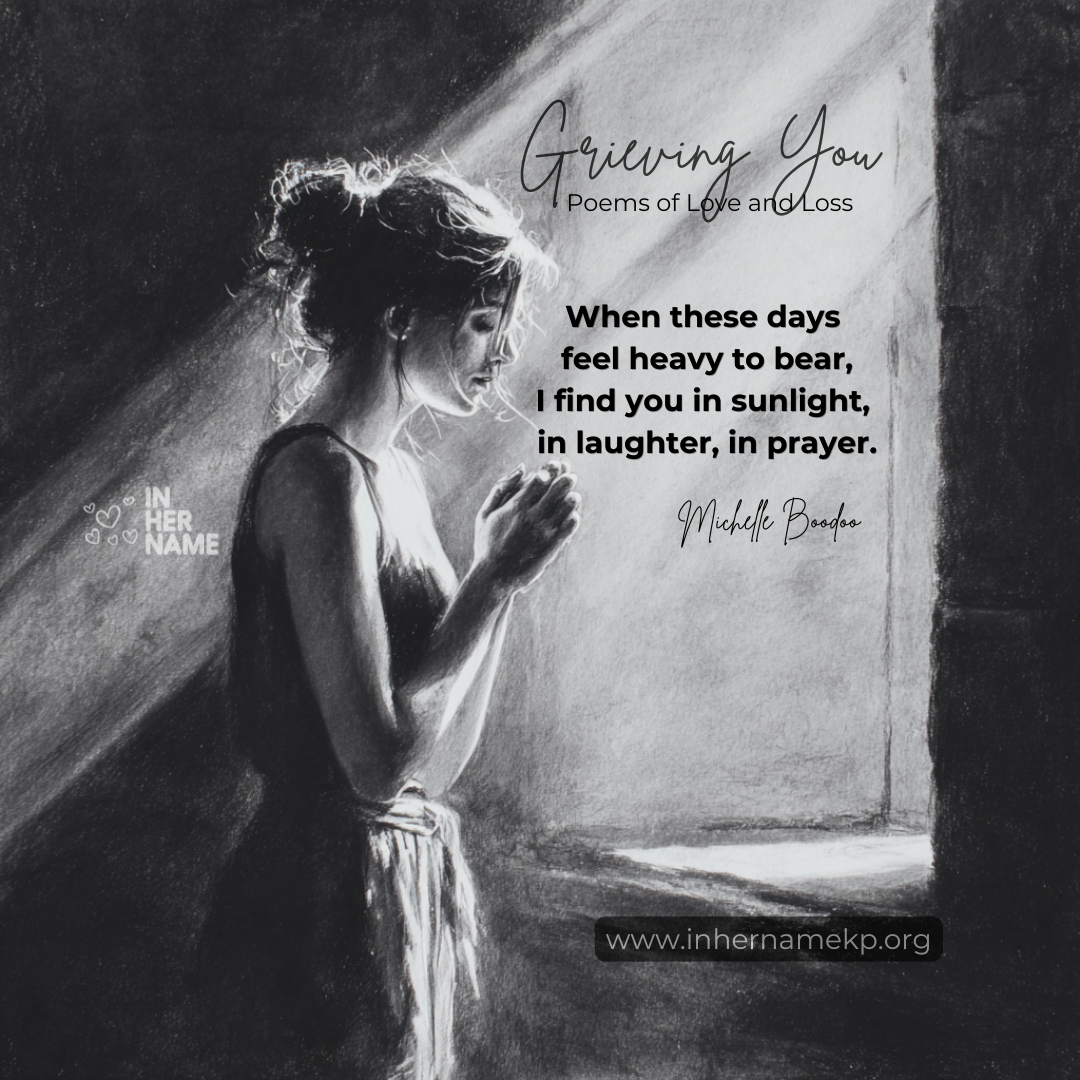 Grieving You
Poems of Love and Loss
When these days
feel heavy to bear,
I find you in sunlight,
in laughter, in prayer.
Michelle Boodoo
IN
HER
NAME
www.inhernamekp.org